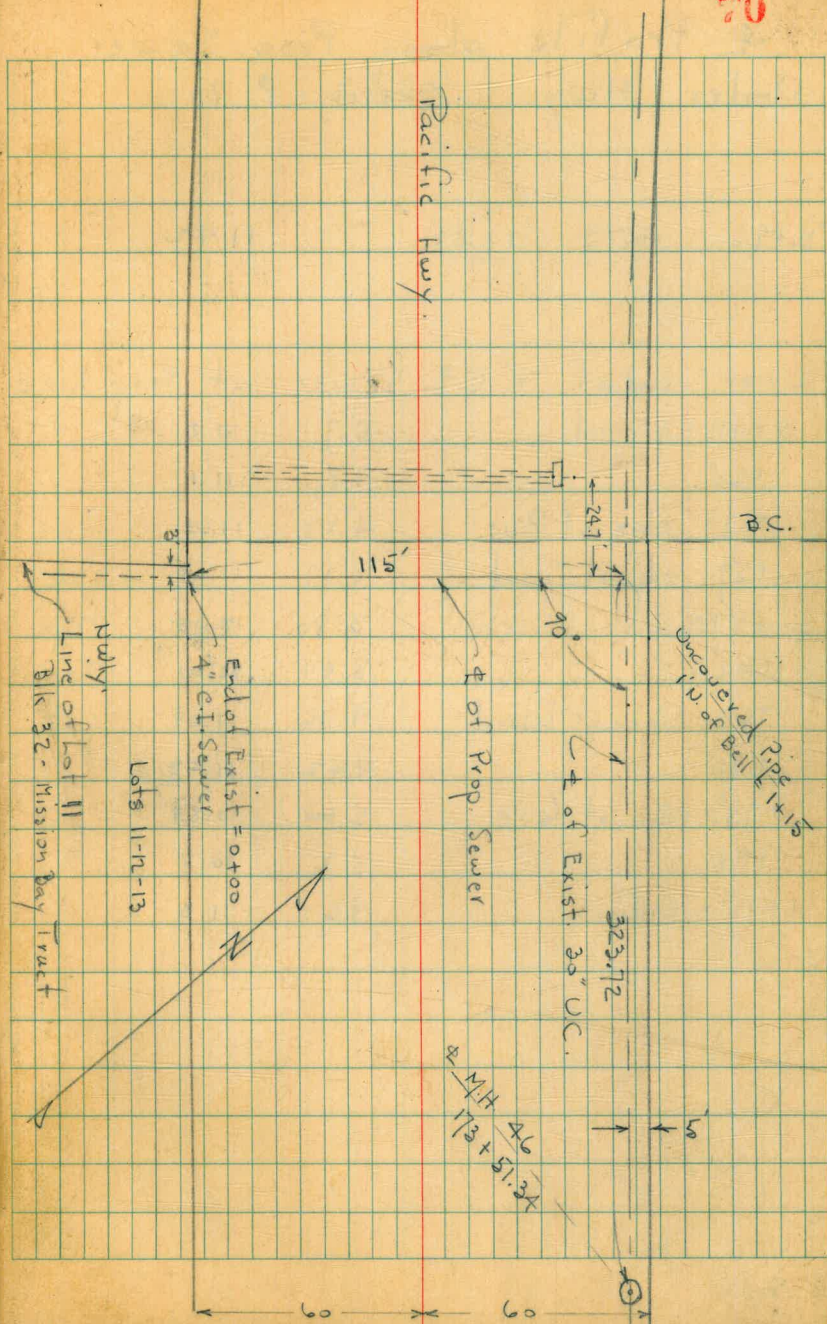 70
Pacific Hwy.
B.C.
24.7'
115'
90°
3'
Uncovered Pipe
1' N. of Bell = 1+15
℄ of Prop. Sewer
℄ of Exist. 30" V.C.
323.72
End of Exist = 0+00
4" C.I. Sewer
Lots 11-12-13
Nwly'
Line of Lot 11
Blk 32 - Mission Bay Tract
N
℄ M.H 46
173 + 51.34
5'
60
60